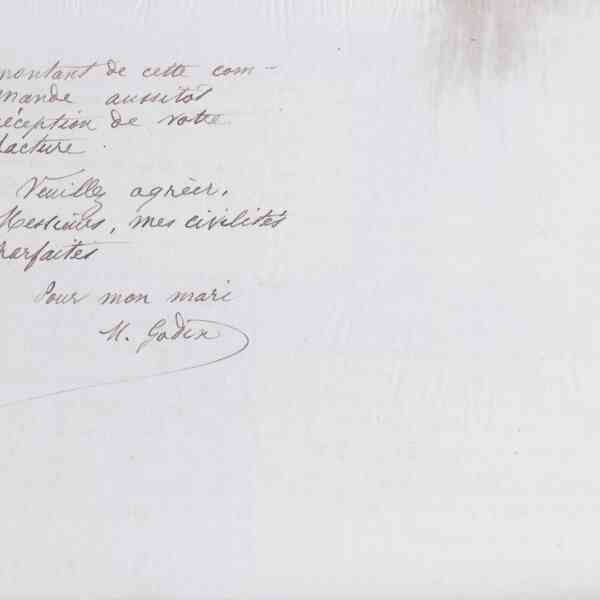 montant de cette com-
mande aussitôt
réception de votre
facture.
Veuillez agréer,
Messieurs, mes civilités
parfaites
Pour mon mari
M. Godin